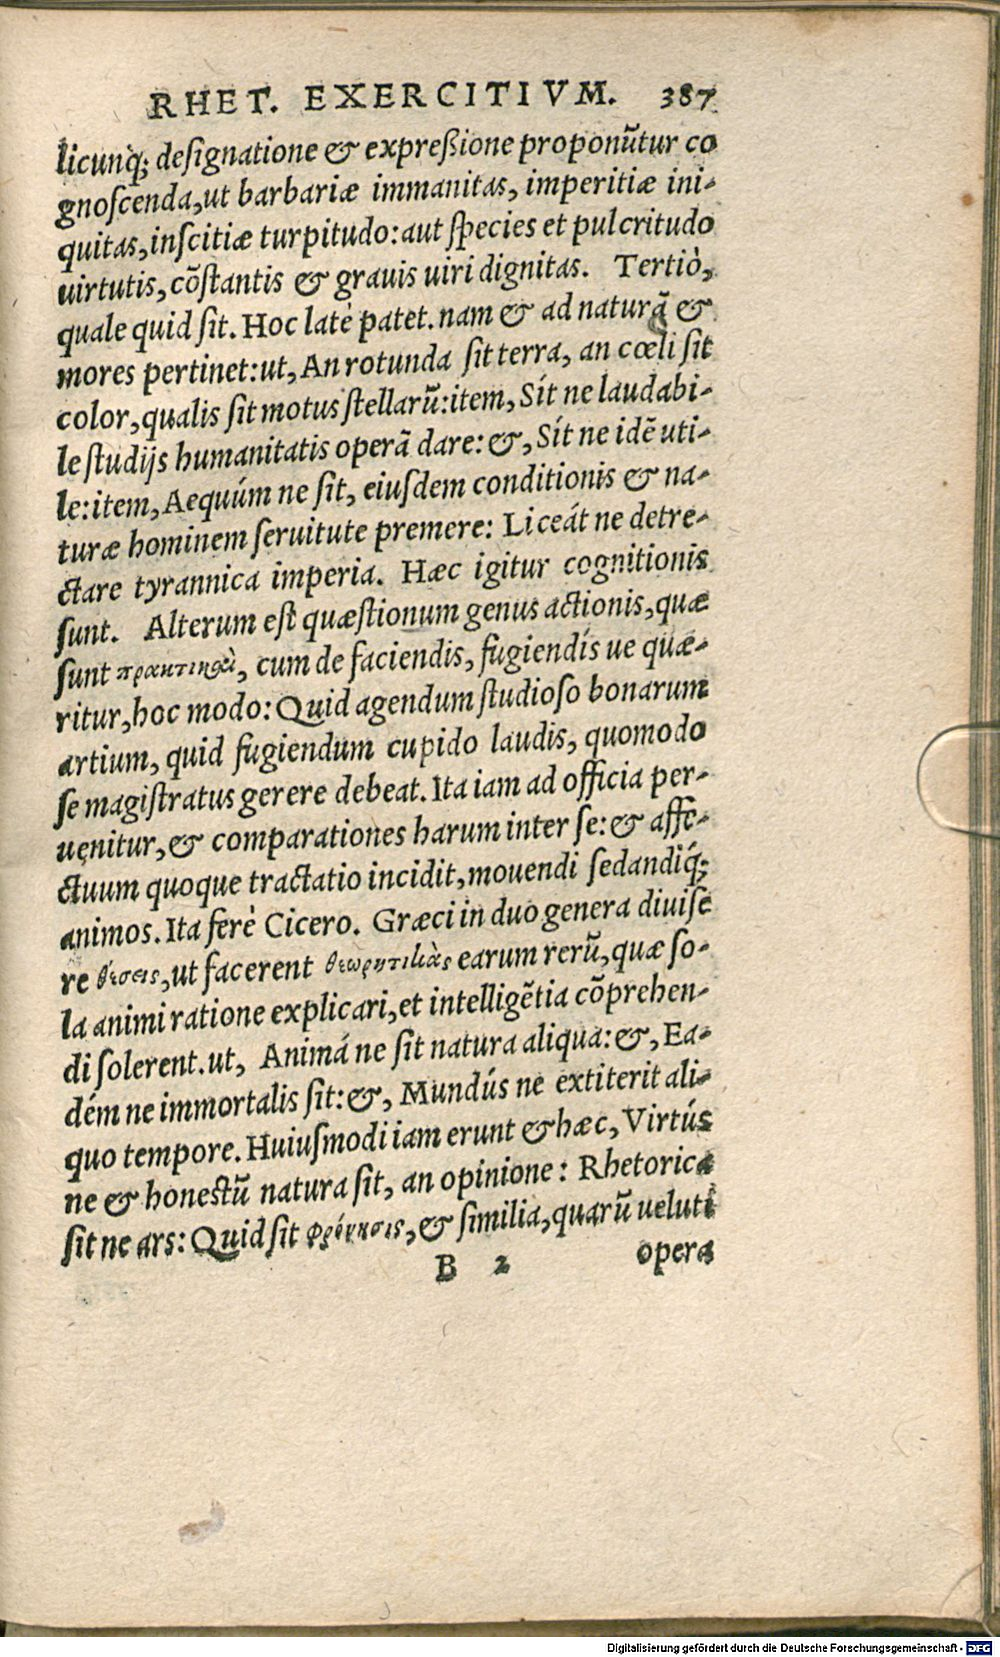 RHET. EXERCITIVM. 387
licunq́; deſignatione & expreßione proponũtur co
gnoſcenda,ut barbariæ immanitas, imperitiæ ini-
quitas,inſcitiæ turpitudo:aut ſpecies et pulcritudo
uirtutis,cõſtantis & grauis uiri dignitas. Tertiò,
quale quid ſit. Hoc latè patet. nam & ad naturã &
mores pertinet:ut, An rotunda ſit terra, an cœli ſit
color,qualis ſit motus ſtellarũ:item, Sít ne laudabi-
le ſtudijs humanitatis operã dare: &, Sít ne idẽ uti-
le:item, Aequúm ne ſit, eiuſdem conditionis & na-
turæ hominem ſeruitute premere: Liceát ne detre-
ctare tyrannica imperia. Hæc igitur cognitionis
ſunt. Alterum eſt quæſtionum genus actionis,quæ
ſunt πρακτικαὶ, cum de faciendis, fugiendís ue quæ-
ritur,hoc modo: Quid agendum ſtudioſo bonarum
artium, quid fugiendum cupido laudis, quomodo
ſe magiſtratus gerere debeat. Ita iam ad officia per-
uenitur,& comparationes harum inter ſe: & affe-
ctuum quoque tractatio incidit,mouendi ſedandiq́;
animos. Ita ferè Cicero. Græci in duo genera diuiſe
re θέσεις,ut facerent θεωρητικὰς earum rerũ,quæ ſo-
la animi ratione explicari,et intelligẽtia cõprehen-
di ſolerent.ut, Animá ne ſit natura aliqua: &, Ea-
dém ne immortalis ſit: &, Mundús ne extiterit ali-
quo tempore. Huiuſmodi iam erunt & hæc, Virtús
ne & honeſtũ natura ſit, an opinione: Rhetorica
ſit ne ars: Quid ſit φρόνησις,& ſimilia,quarũ ueluti
B 2 opera
Digitalisierung gefördert durch die Deutsche Forschungsgemeinschaft - DFG